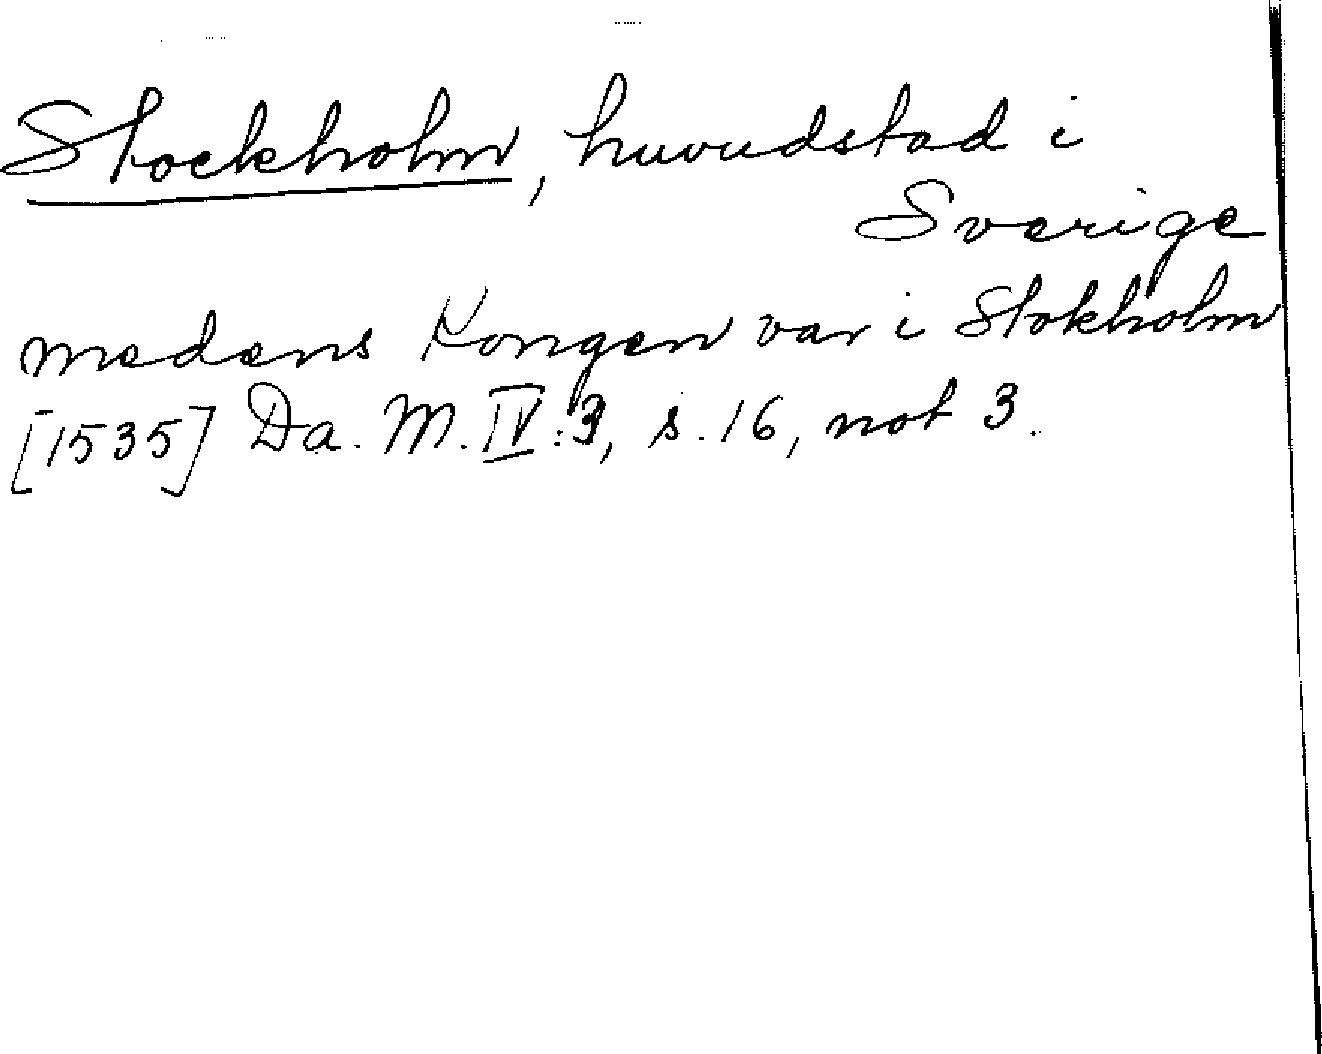 Stockholm, huvudstad i
Sverige
medens Kongen var i Stokholm
[1535] Da. M. IV:3, s. 16, not 3.